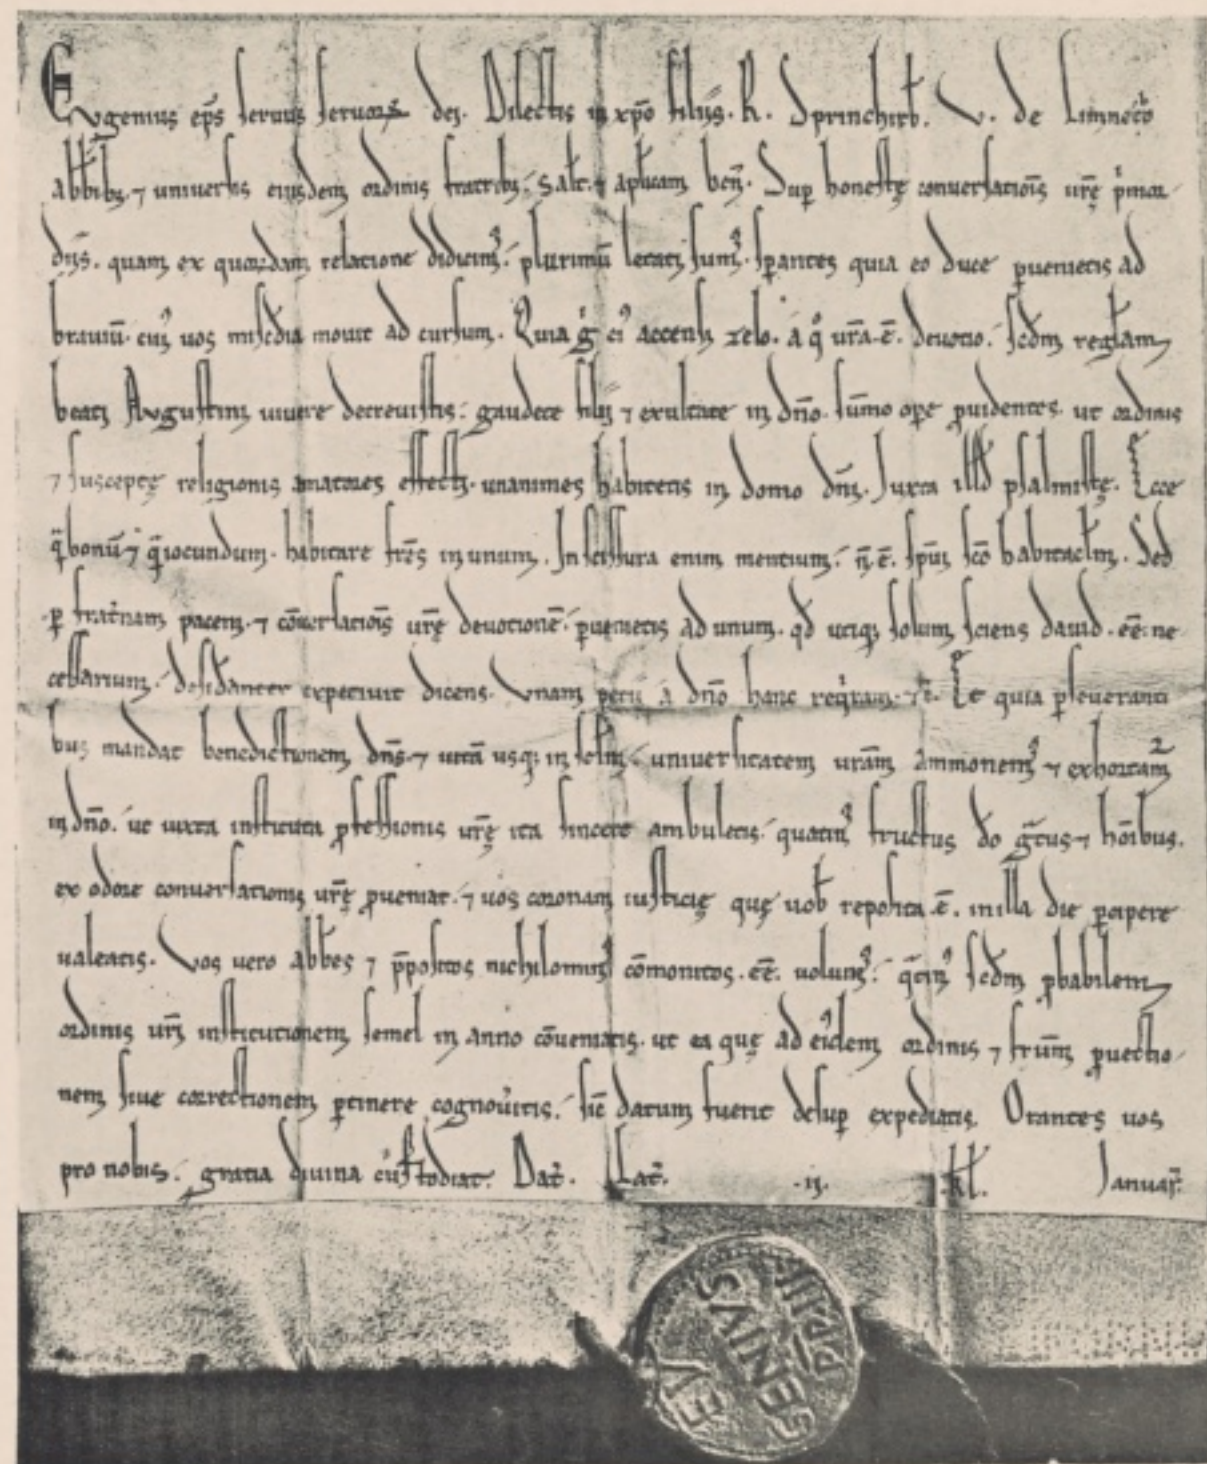 Eugenius ep̄s seruus seruoꝝ dej. Dilectis in xp̄o filijs. R. de
abb̄ibȝ. ⁊ uniuersis eiusdem ordinis fratribȝ. Salt̄. ⁊ aplicam ben̄. Sup̱ honestę conuersatiōīs ur̄ę pͥmor-
dijs. quam ex quorūdam relatione didicimꝰ. plurimū letati sumꝰ. sꝑantes quia eo duce ꝑuenietis ad
brauiū. cuiꝰ uos mis̄cd̄ia mouit ad cursum. Quia gͦ eiꝰ accensi zelo. a qͦ ur̄a. ē. deuotio. sc̄dm regl̄am
beati Augustini uiuere decreuistis. gaudete filij ⁊ exultate in dn̄o. sūmo oꝑe ꝓuidentes. ut ordinis
⁊ susceptę religionis amatores effecti. unanimes habitetis in domo dn̄i. Juxta illd̄ psalmistę. Ecce
qͣ bonū ⁊ qͣ iocundum. habitare fr̄es in unum. In scissura enim mentium. n̄. ē. sp̄ui sc̄o habitacl̄m. Sed
ꝑ frat̄nam pacem. ⁊ cōuersatiōīs ur̄ę deuotionē. ꝑuenietis ad unum. qd̄ utiqȝ solum sciens dauid. ēē. ne-
cessarium. desid̄anter expetiuit dicens. Vnam petii a dn̄o hanc reqͥram. ⁊c̄. Et quia ꝑseueranti
bus mandat benedictionem dn̄s. ⁊ uitā usqȝ in sc̄lm. uniuersitatem ur̄am ammonemꝰ ⁊ exhortam̄
in dn̄o. ut iuxta instituta ꝓfessionis ur̄ę ita sincere ambuletis. quatinꝰ fructus dō gͣtus ⁊ hōībus.
ex odore conuersationis ur̄ę ꝓueniat. ⁊ uos coronam iusticię quę uob̄ reposita. ē. in illa die ꝑcipere
ualeatis. Vos uero abb̄es ⁊ p̄positos nichilominꝰ cōmonitos. ēē. uolumꝰ. qͣtinꝰ sc̄dm ꝓbabilem
ordinis ur̄i institutionem semel in anno cōueniatis. ut ea quę ad eiꝰdem ordinis ⁊ fr̄um ꝓuectio-
nem siue correctionem ꝑtinere cognou̓itis. sic̄ datum fuerit desuꝑ expediatis. Orantes uos
pro nobis. gratia diuina custodiat. Dat̄. Lat̄. .ij. kl̄. Januar̄.
EV
GENIVS
PP III